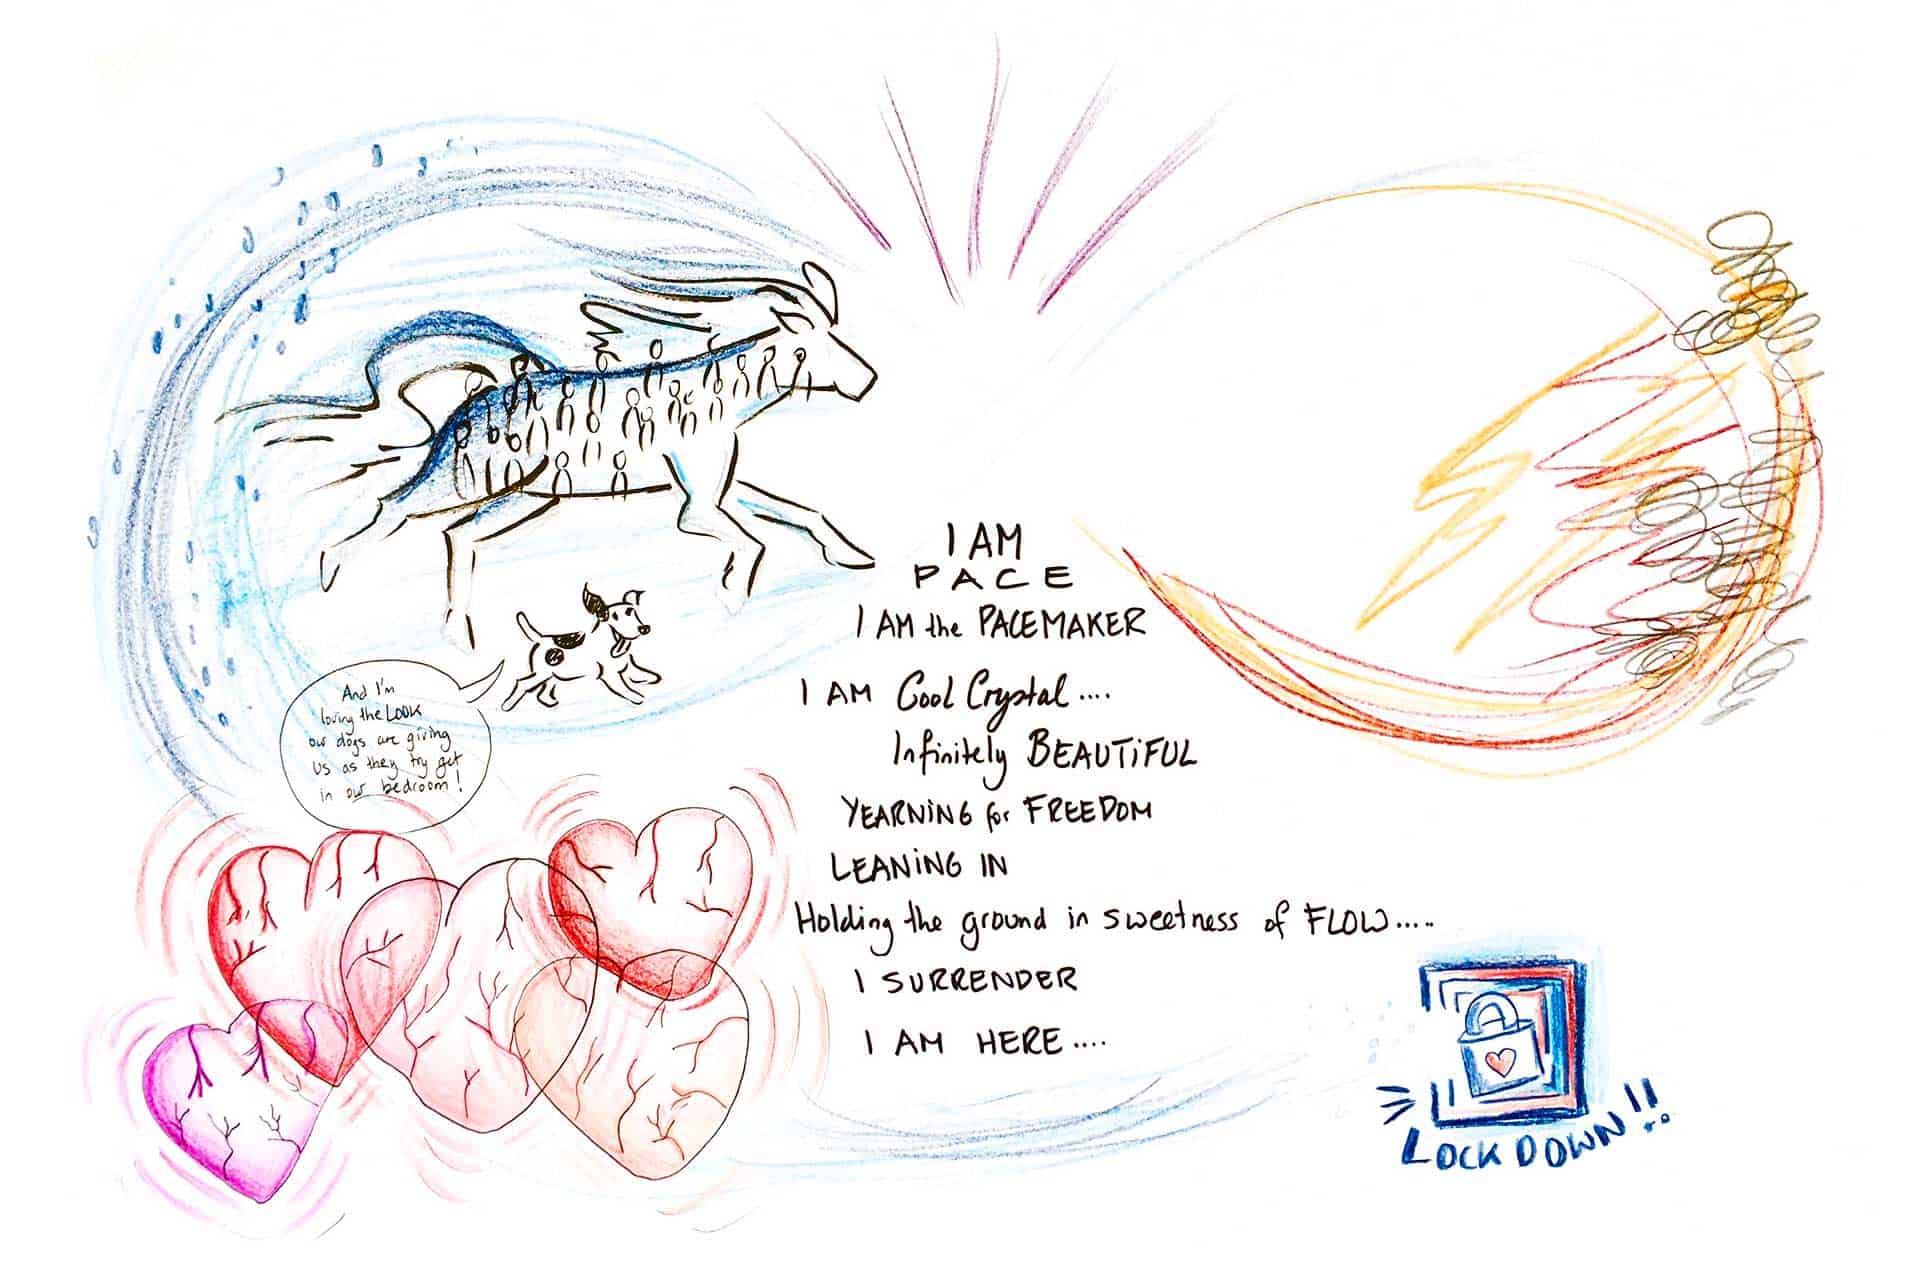 I AM
PACE
I AM the PACEMAKER
I AM Cool Crystal....
Infinitely BEAUTiFUL
YEARNiNG for FREEDOM
LEANiNG IN
Holding the ground in sweetness of FLOW.....
I SURRENDER
I AM HERE....
And I'm
loving the LOOK
our dogs are giving
us as they try get
in our bedroom!
LOCKDOWN!!